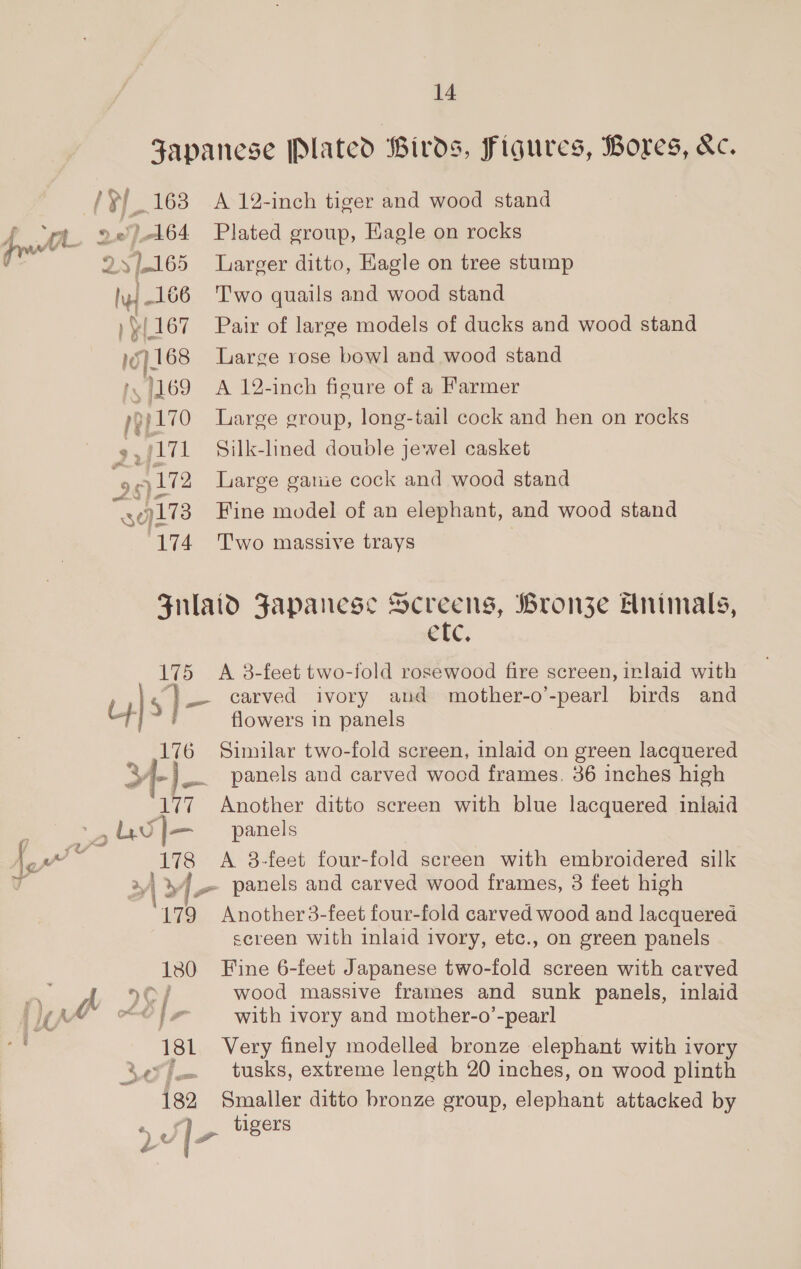 14
Japanese Plated Birds, Figures, Boxes, &c.
163 A 12-inch tiger and wood stand
164 Plated group, Eagle on rocks
165 Larger ditto, Eagle on tree stump
166 Two quails and wood stand
167 Pair of large models of ducks and wood stand
168 Large rose bowl and wood stand
169 A 12-inch figure of a Farmer
170 Large group, long-tail cock and hen on rocks
171 Silk-lined double jewel casket
172 Large game cock and wood stand
173 Fine model of an elephant, and wood stand
174 Two massive trays
Inlaid Japanese Screens, Bronze Animals,
etc.
175 A 3-feet two-fold rosewood fire screen, inlaid with
carved ivory and mother-o'-pearl birds and
flowers in panels
176 Similar two-fold screen, inlaid on green lacquered
panels and carved wood frames. 36 inches high
177 Another ditto screen with blue lacquered inlaid
panels
178 A 3-feet four-fold screen with embroidered silk
panels and carved wood frames, 3 feet high
179 Another 3-feet four-fold carved wood and lacquered
screen with inlaid ivory, etc., on green panels
180 Fine 6-feet Japanese two-fold screen with carved
wood massive frames and sunk panels, inlaid
with ivory and mother-o'-pearl
181 Very finely modelled bronze elephant with ivory
tusks, extreme length 20 inches, on wood plinth
182 Smaller ditto bronze group, elephant attacked by
tigers